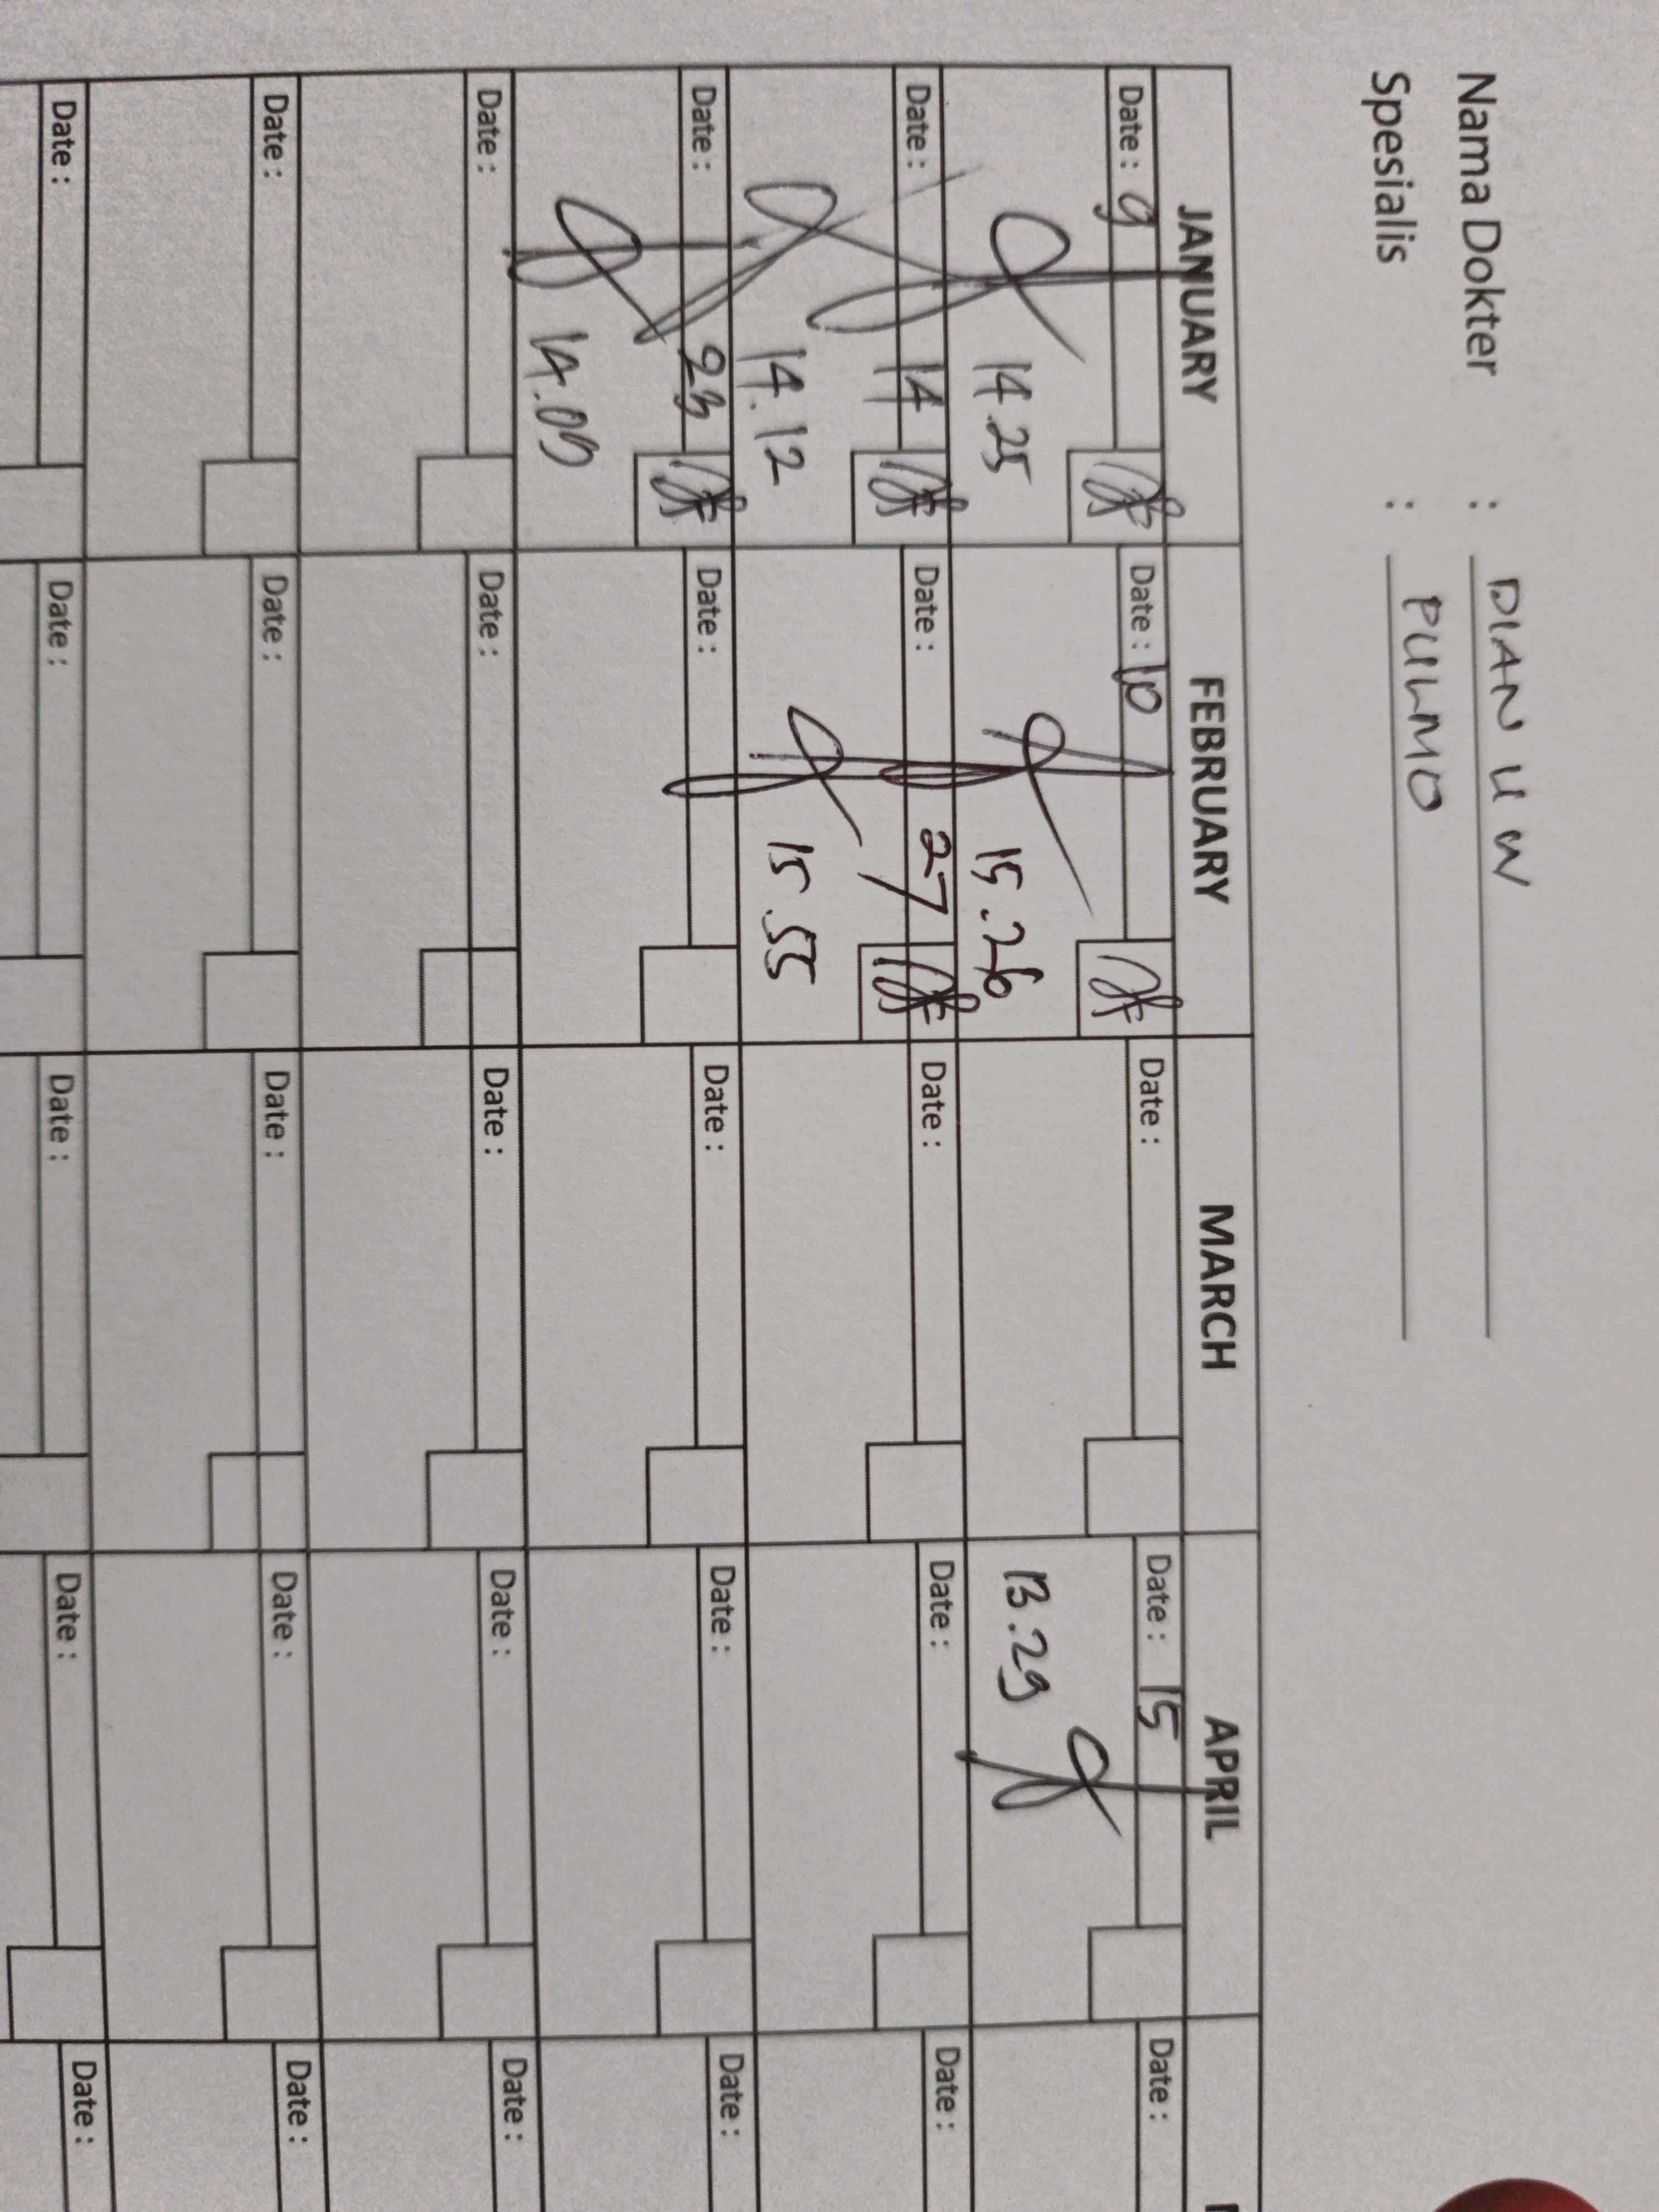 Nama Dokter : DIAN U W
Spesialis : PULMO
JANUARY FEBRUARY MARCH APRIL
Date : 9 Date : 10 Date : Date : 15 Date :
14.25 15.26 13.29
Date : 14 Date : 27 Date : Date : Date :
14.12 15.55
Date : 23 Date : Date : Date : Date :
14.09
Date : Date : Date : Date : Date :
Date : Date : Date : Date : Date :
Date : Date : Date : Date : Date :